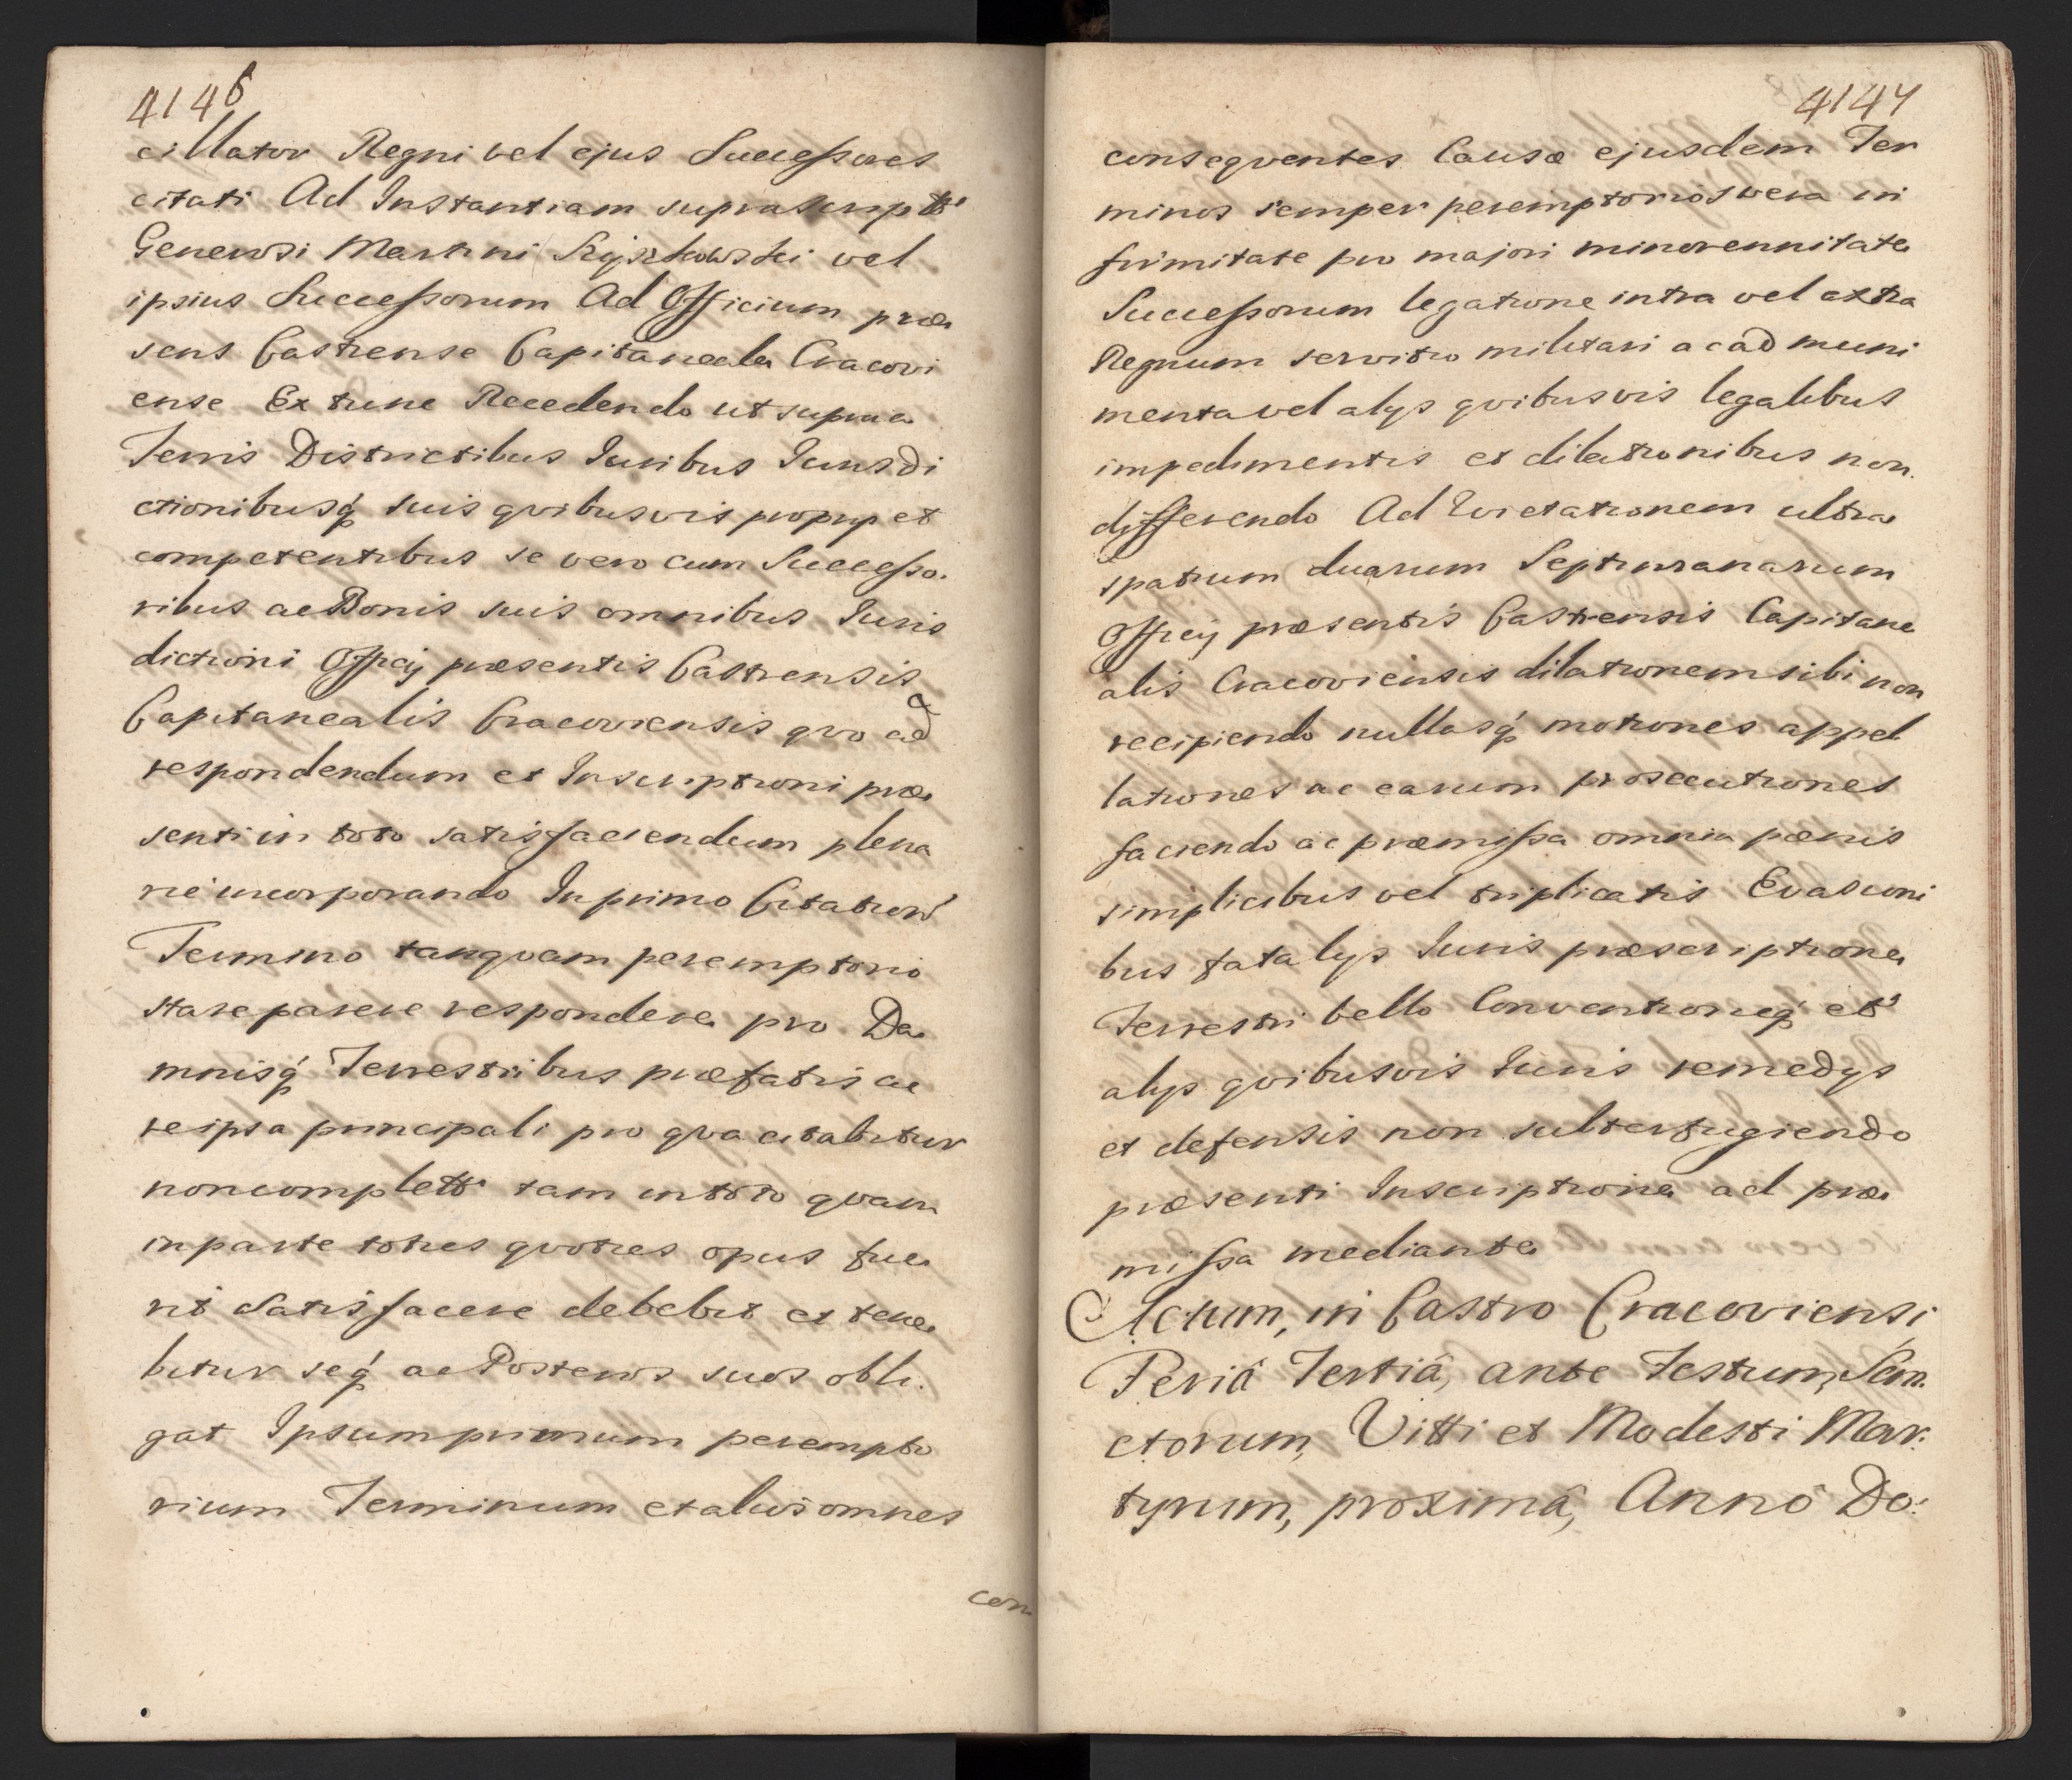 4146
cillator Regni vel ejus Successores
citati Ad Instantiam suprascripti
Generosi Martini vel
ipsius Successorum Ad Officium præ
sens Castrense Capitaneale Cracovi
ense Ex tunc Recedendo ut supra
Terris Districtibus Juribus Jurisdi
ctionibusq́ suis qvibusvis proprys et
competentibus se vero cum Successo.
ribus ac Bonis suis omnibus Juris
dictioni Officij præsentis Castrensis
Capitanealis Cracoviensis qvo ad
respondendum et Inscriptioni præ
senti in toto satisfaciendum plena
rie incorporando In primo Citationis
Termino tanqvam peremptorio
stare parere respondere pro Da
mnisq́ Terrestribus præfatis ac
re ipsa principali pro qva citabitur
non completo tam in toto qvam
in parte toties qvoties opus fue
rit Satisfacere debebit et tene
bitur seq́ ac Posteros suos obli.
gat Ipsum primum perempto
rium Terminum et alios omnes
con
4147
conseqventes Causæ ejusdem Ter
minos semper peremptorios vera in
firmitate pro majori minorennitate
Successorum legatione intra vel extra
Regnum servitio militari ac ad muni
menta vel alys qvibusvis legalibus
impedimentis et dilationibus non
differendo Ad Evictationem ultra
spatium duarum Septimanarum
Officij præsentis Castrensis Capitane
alis Cracoviensis dilationem sibi non
recipiendo nullasq́ motiones appel
lationes ac earum prosecutiones
faciendo ac præmissa omnia pœnis
simplicibus vel triplicatis Evasioni
bus fatalys Juris præscriptione
Terrestri bello Conventioneq́ et
alys qvibusvis Juris remedys
et defensis non subterfugiendo
præsenti Inscriptione ad præ
missa mediante
Actum, in Castro Cracoviensi
Feriâ Tertiâ, ante Festum, San.
ctorum, Vitti et Modesti Mar:
tyrum, proximâ, Annô Do: